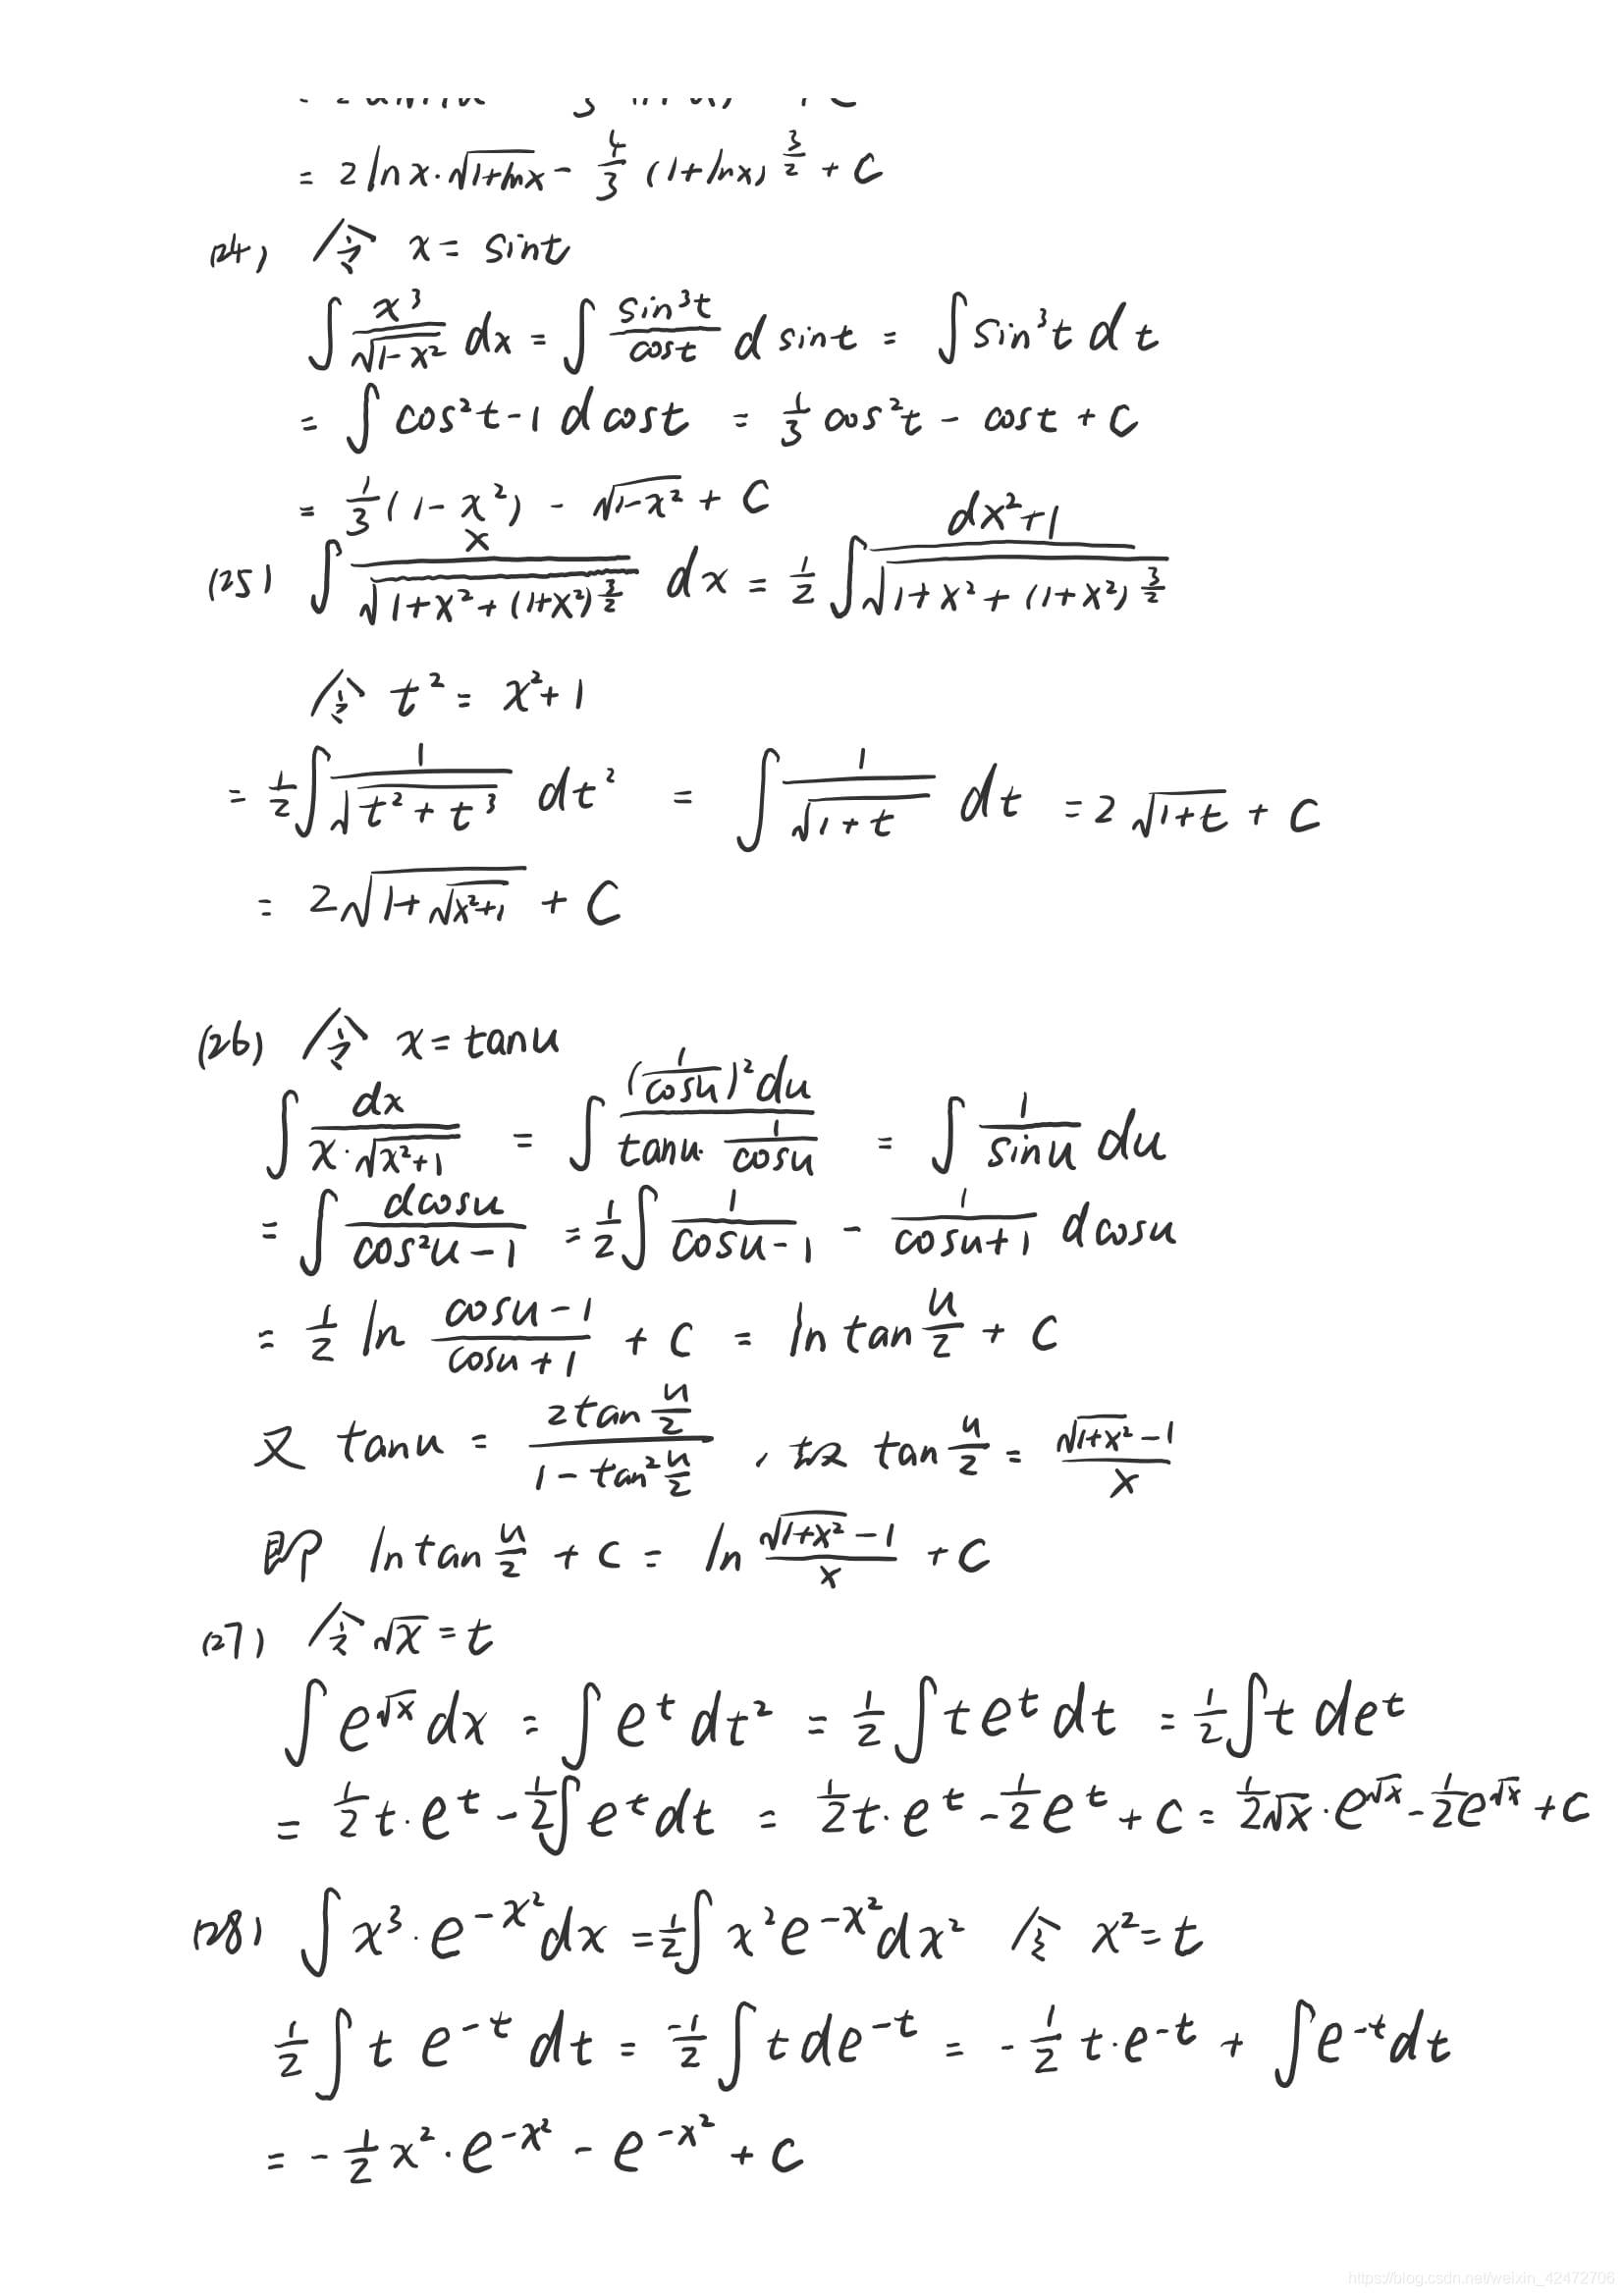 = 2 ln x · √(1+lnx) - 4/3 (1+lnx)^(3/2) + C
(24) 令 x = sint
∫ x³/√(1-x²) dx = ∫ sin³t/cost d sint = ∫ sin³t dt
= ∫ cos²t-1 dcost = 1/3 cos²t - cost + C
= 1/3 (1-x²) - √(1-x²) + C
(25) ∫ x/√(1+x²+(1+x²)^(3/2)) dx = 1/2 ∫ dx²+1/√(1+x²+(1+x²)^(3/2))
令 t² = x²+1
= 1/2 ∫ 1/√(t²+t³) dt² = ∫ 1/√(1+t) dt = 2√(1+t) + C
= 2√(1+√(x²+1)) + C
(26) 令 x = tanu
∫ dx/(x·√(x²+1)) = ∫ (1/cosu)²du/(tanu·1/cosu) = ∫ 1/sinu du
= ∫ dcosu/(cos²u-1) = 1/2 ∫ 1/(cosu-1) - 1/(cosu+1) dcosu
= 1/2 ln (cosu-1)/(cosu+1) + C = ln tan u/2 + C
又 tanu = 2tan u/2/(1-tan² u/2) , 故 tan u/2 = (√(1+x²)-1)/x
即 ln tan u/2 + C = ln (√(1+x²)-1)/x + C
(27) 令 √x = t
∫ e^√x dx = ∫ e^t dt² = 1/2 ∫ t e^t dt = 1/2 ∫ t de^t
= 1/2 t·e^t - 1/2 ∫ e^t dt = 1/2 t·e^t - 1/2 e^t + C = 1/2 √x·e^√x - 1/2 e^√x + C
(28) ∫ x³·e^(-x²) dx = 1/2 ∫ x² e^(-x²) dx² 令 x² = t
1/2 ∫ t e^(-t) dt = -1/2 ∫ t de^(-t) = -1/2 t·e^(-t) + ∫ e^(-t) dt
= -1/2 x²·e^(-x²) - e^(-x²) + C
https://blog.csdn.net/weixin_42472706